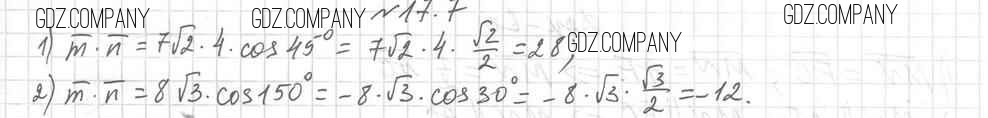 GDZ.COMPANY GDZ.COMPANY №17.7 GDZ.COMPANY
1) m̅ · n̅ = 7√2 · 4 · cos 45° = 7√2 · 4 · √2/2 = 28, GDZ.COMPANY
2) m̅ · n̅ = 8√3 · cos 150° = -8 · √3 · cos 30° = -8 · √3 · √3/2 = -12.